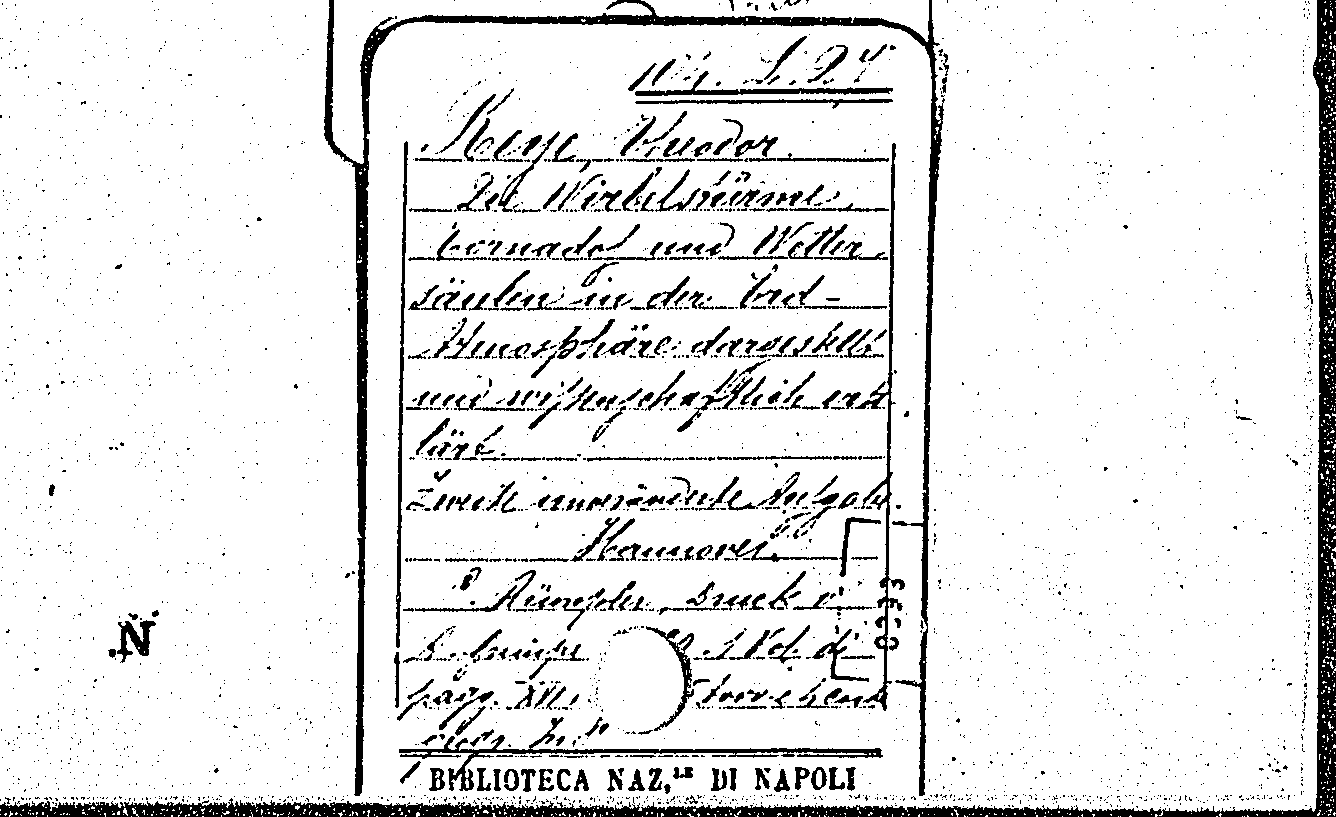 104. L. 24
Reye, Theodor.
Die Wirbelstürme,
tornados und Wetter-
säulen in der Erd-
Atmosphäre dargestellt
und wissenschaftlich erk
lärt.
Zweite unveränderte Ausgabe.
Hannover.
C. Rümpler, Druck v.
1 Vol. di
pagg. XVI,
BIBLIOTECA NAZ.LE DI NAPOLI
0393
N